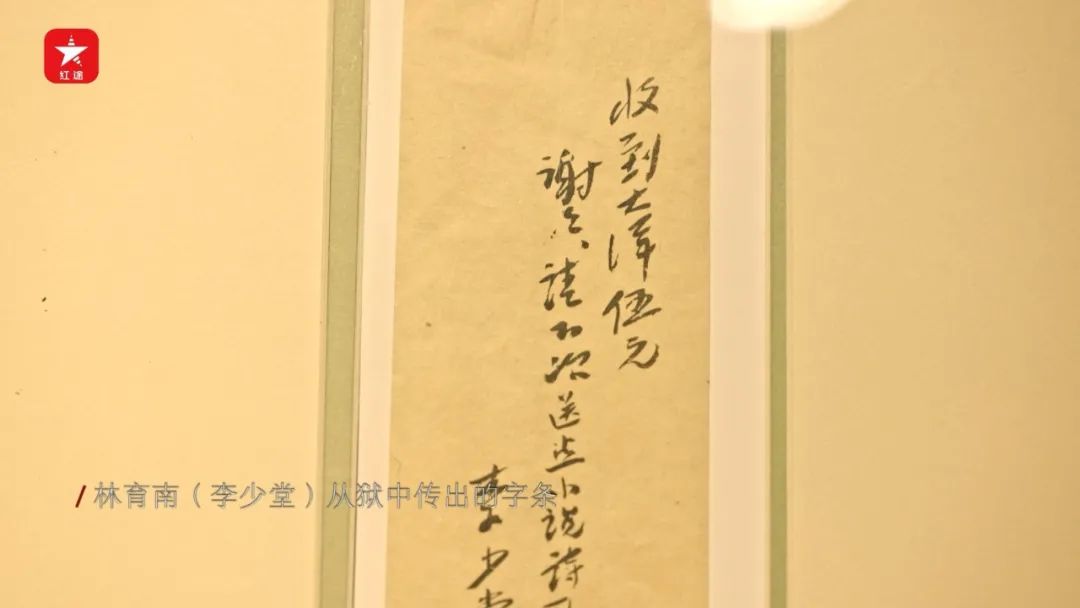 红途
收到大洋伍元
谢谢、请下次送些小说诗
李少堂
林育南（李少堂）从狱中传出的字条